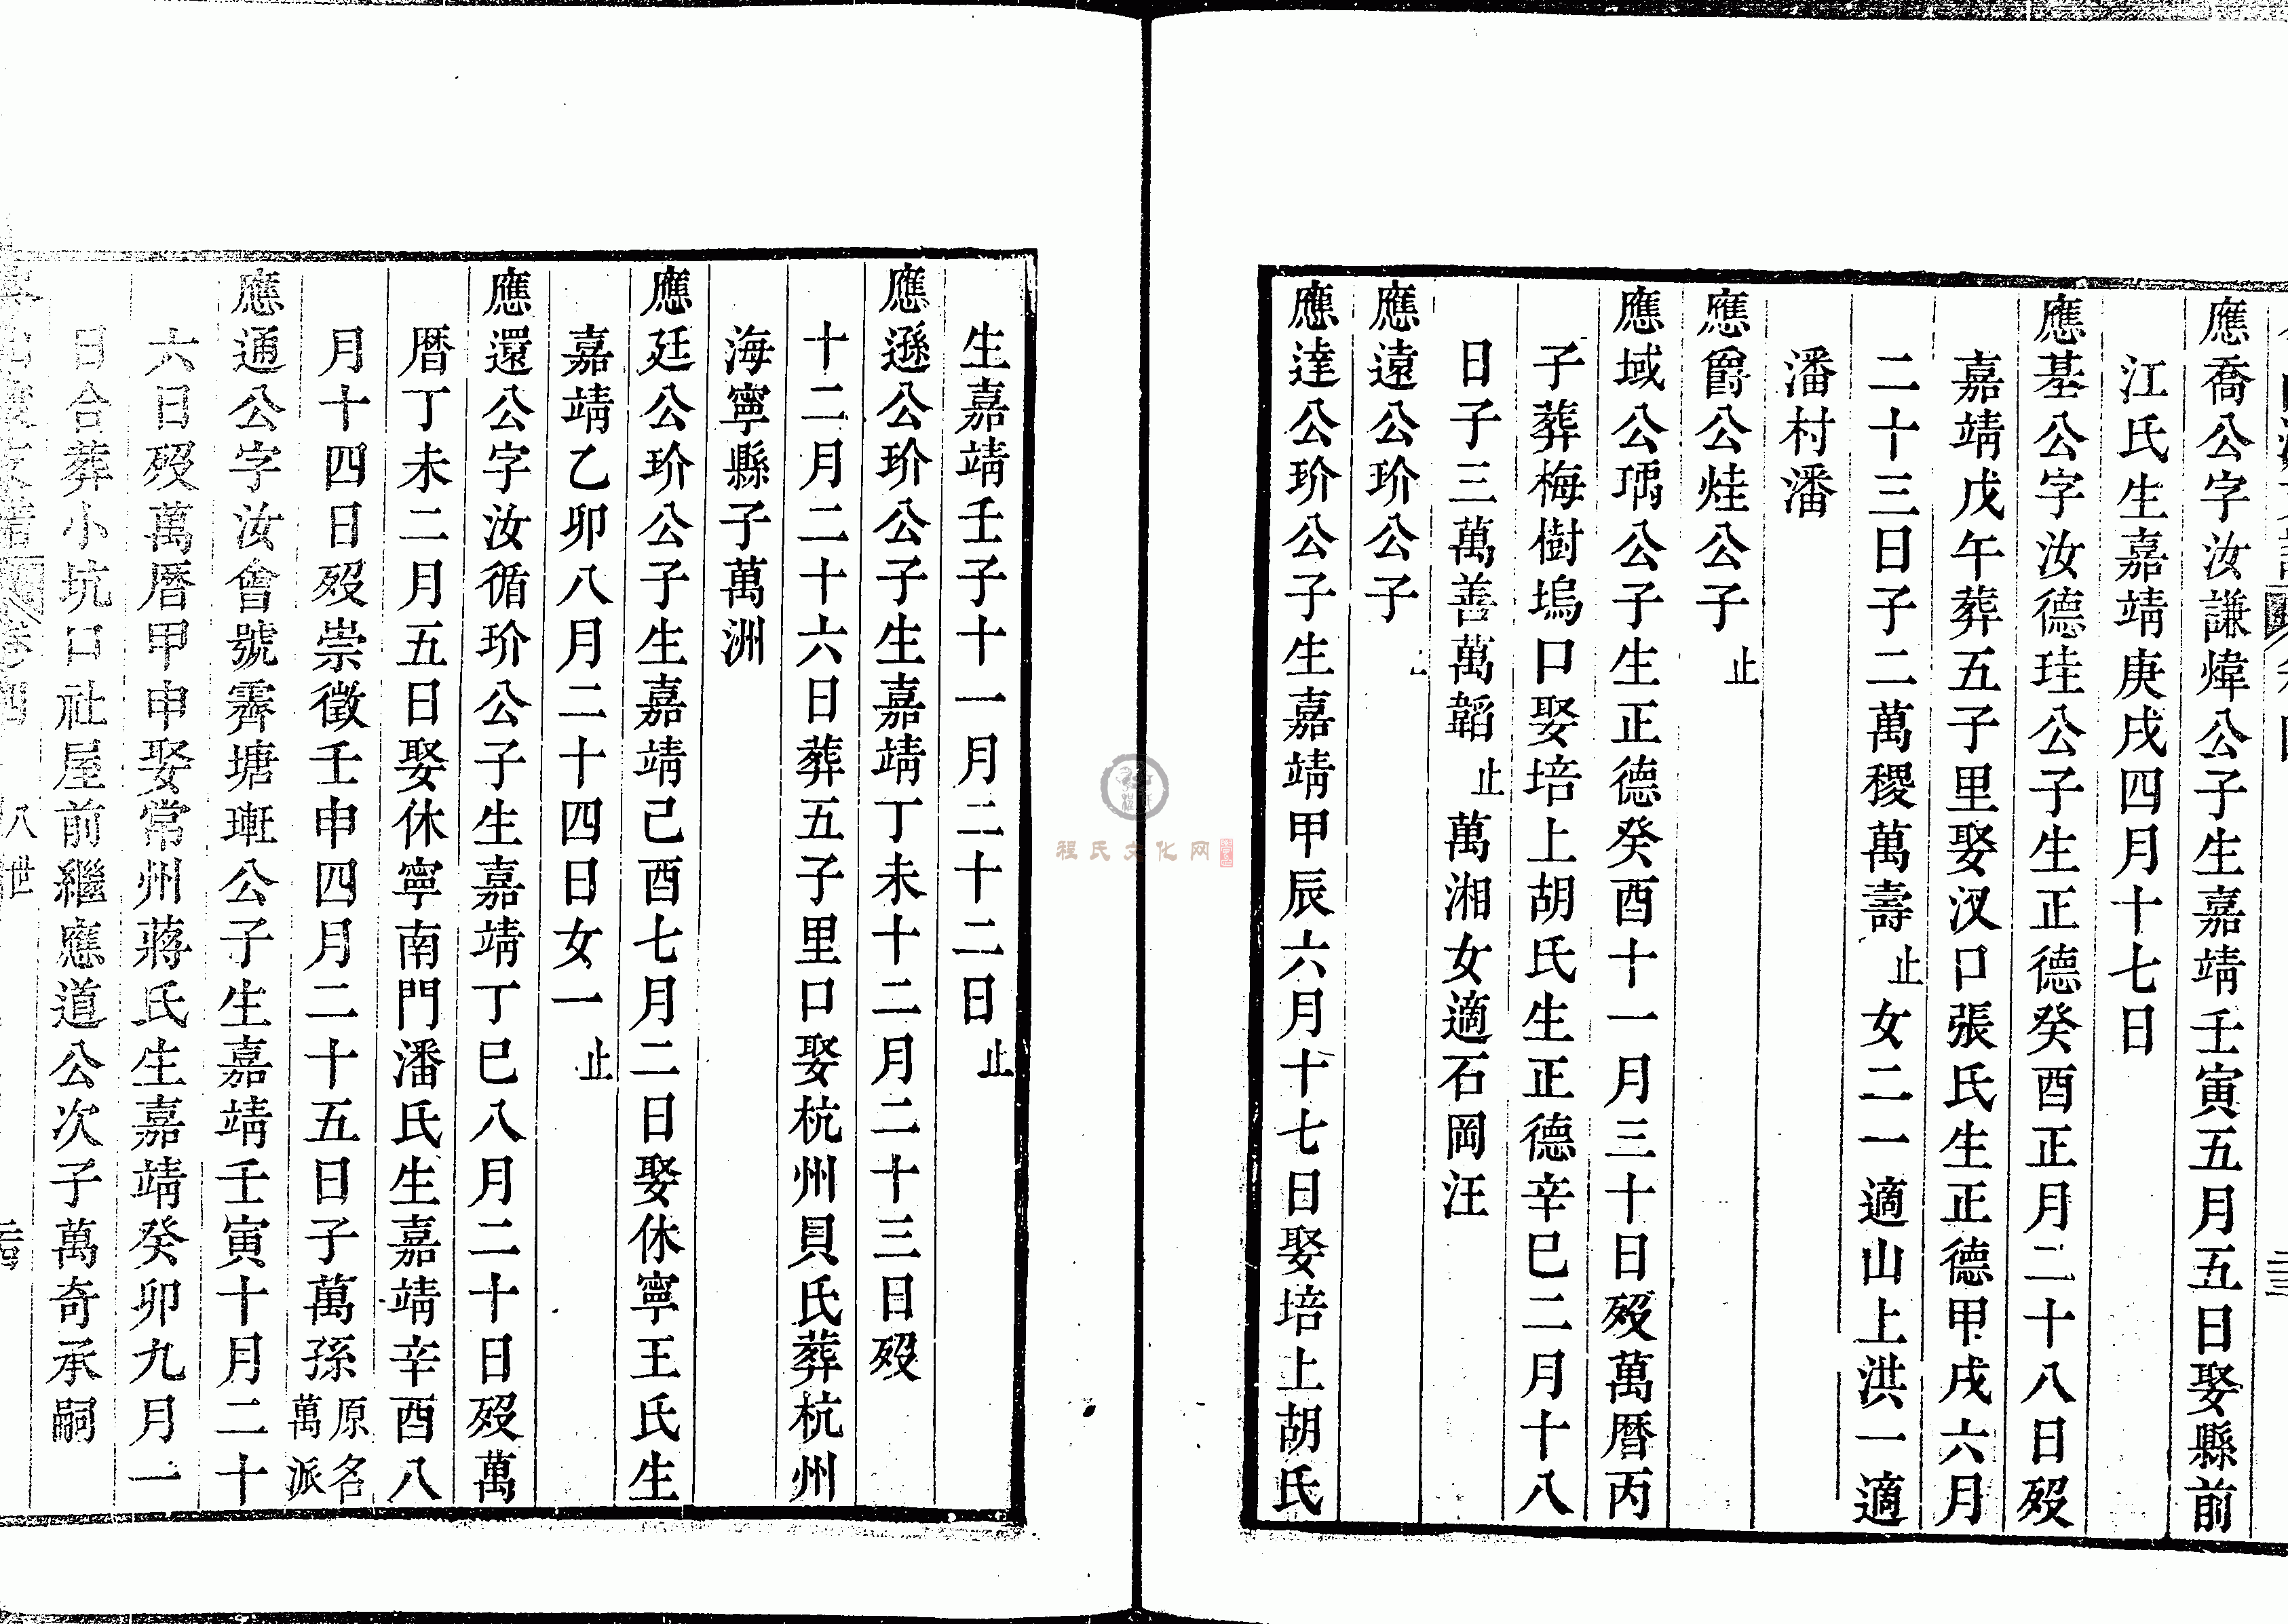 應喬公字汝謙煒公子生嘉靖壬寅五月五日娶縣前
江氏生嘉靖庚戌四月十七日
應基公字汝德珪公子生正德癸酉正月二十八日歿
嘉靖戊午葬五子里娶汊口張氏生正德甲戌六月
二十三日子二萬稷萬壽止女二一適山上洪一適
潘村潘
應爵公烓公子止
應域公瑀公子生正德癸酉十一月三十日歿萬曆丙
子葬梅樹塢口娶培上胡氏生正德辛巳二月十八
日子三萬善萬韜止萬湘女適石岡汪
應遠公玠公子
應達公玠公子生嘉靖甲辰六月十七日娶培上胡氏
生嘉靖壬子十一月二十二日止
應遜公玠公子生嘉靖丁未十二月二十三日歿
十二月二十六日葬五子里口娶杭州貝氏葬杭州
海寧縣子萬洲
應廷公玠公子生嘉靖己酉七月二日娶休寧王氏生
嘉靖乙卯八月二十四日女一止
應還公字汝循玠公子生嘉靖丁巳八月二十日歿萬
曆丁未二月五日娶休寧南門潘氏生嘉靖辛酉八
月十四日歿崇徵壬申四月二十五日子萬孫原名萬派
應通公字汝會號霽塘公子生嘉靖壬寅十月二十
六日歿萬曆甲申娶常州蔣氏生嘉靖癸卯九月一
日合葬小坑口社屋前繼應道公次子萬奇承嗣
卷四
八世
程氏文化网